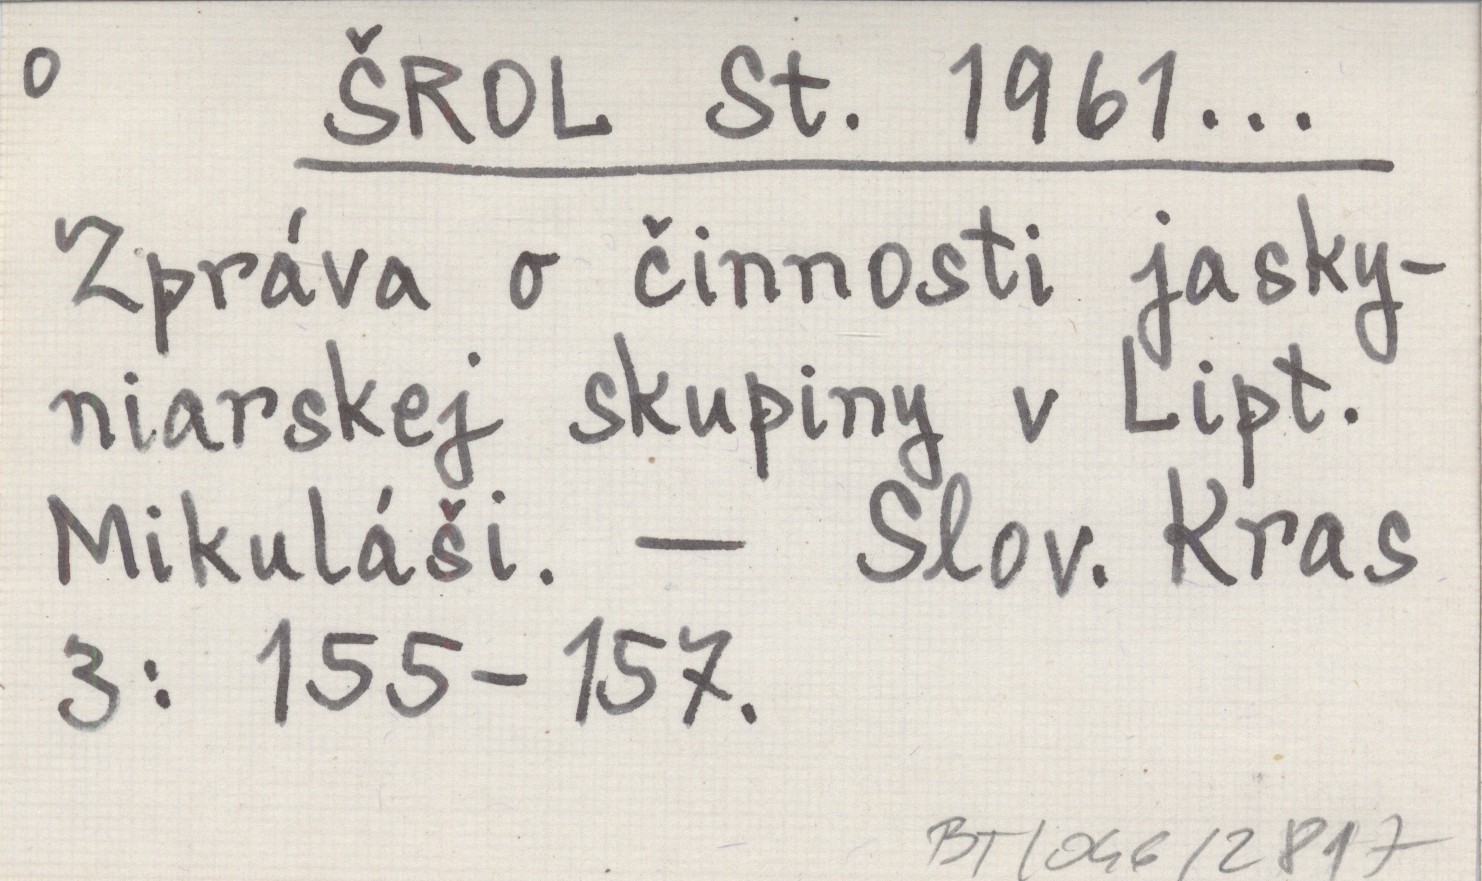 o ŠROL St. 1961...
Zpráva o činnosti jasky-
niarskej skupiny v Lipt.
Mikuláši. — Slov. Kras
3: 155-157.
BT/046/2817